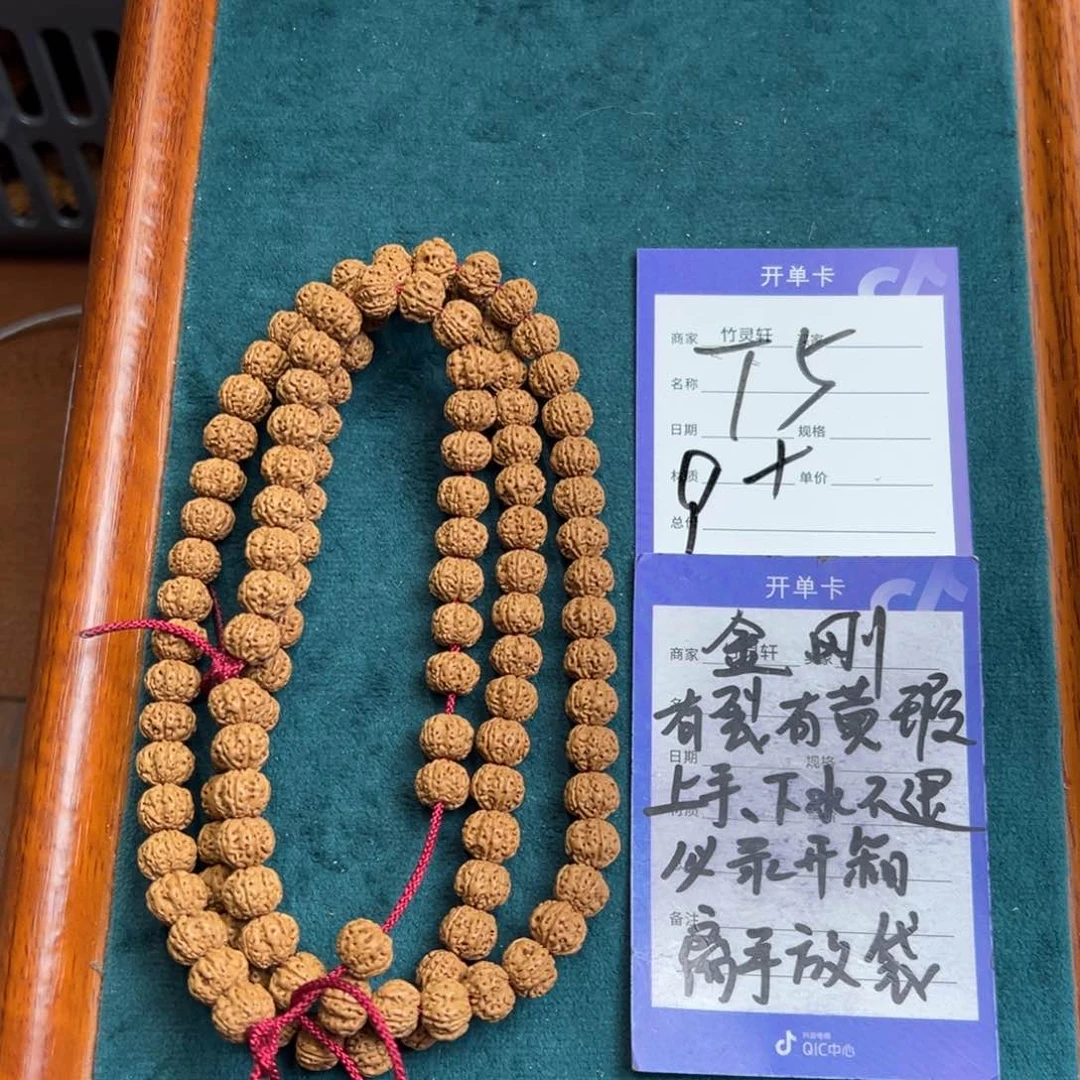 开单卡
商家 竹灵轩
T5
名称
日期 规格
9+
材质 单价
总价
开单卡
商家 轩
金刚
有裂有黄瑕
日期 规格
上手、下水不退
材质
必录开箱
备注
离手放袋
抖音电商
QIC中心